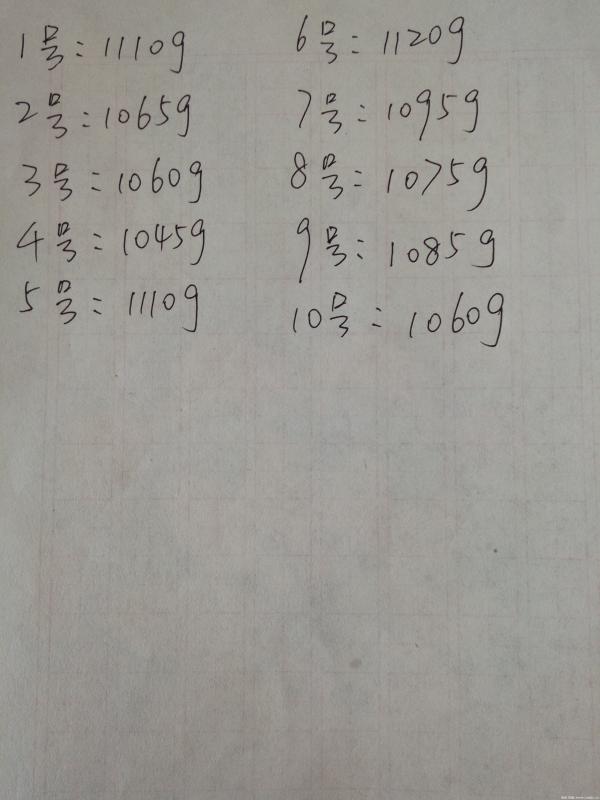 1号：1110g
2号：1065g
3号：1060g
4号：1045g
5号：1110g
6号：1120g
7号：1095g
8号：1075g
9号：1085g
10号：1060g